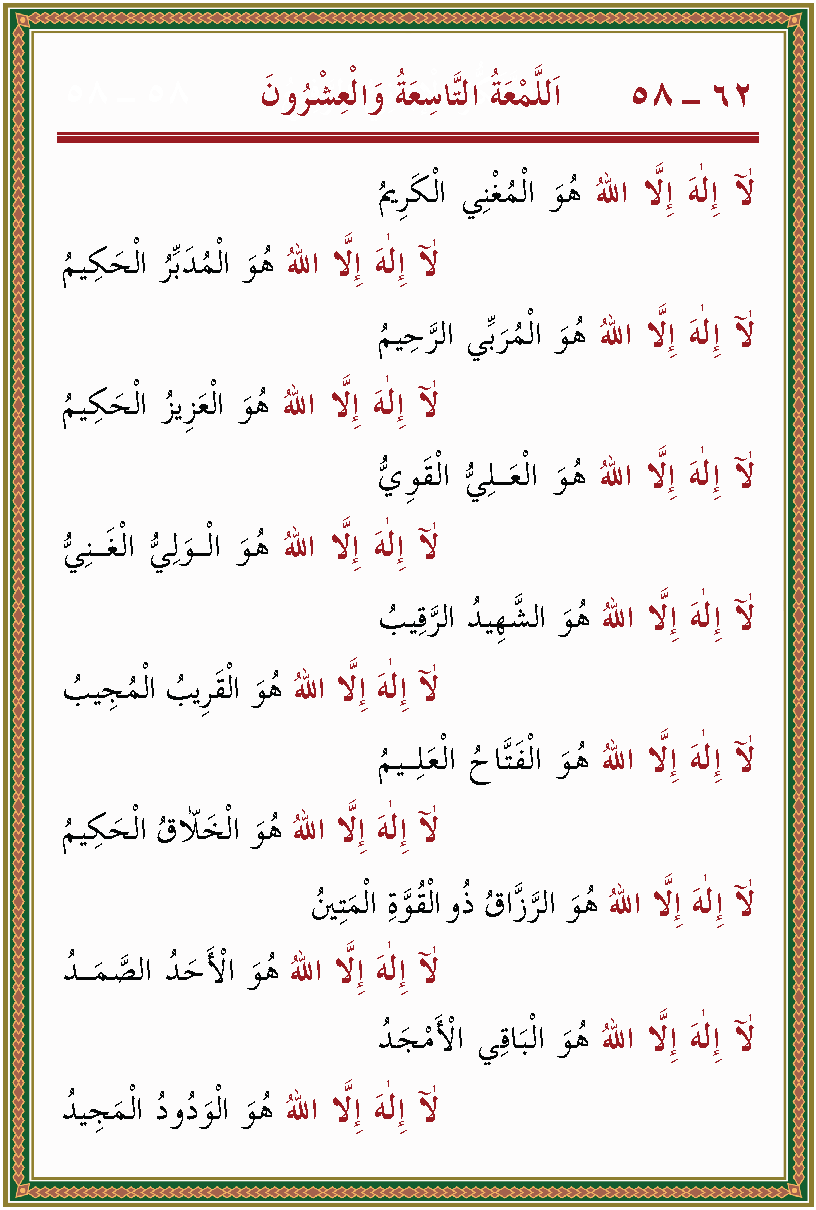 ٦٢ – ٥٨ اَللَّمْعَةُ التَّاسِعَةُ وَالْعِشْرُونَ
لَآ إِلٰهَ إِلَّا اللهُ هُوَ الْمُغْنِي الْكَرِيمُ
لَآ إِلٰهَ إِلَّا اللهُ هُوَ الْمُدَبِّرُ الْحَكِيمُ
لَآ إِلٰهَ إِلَّا اللهُ هُوَ الْمُرَبِّي الرَّحِيمُ
لَآ إِلٰهَ إِلَّا اللهُ هُوَ الْعَزِيزُ الْحَكِيمُ
لَآ إِلٰهَ إِلَّا اللهُ هُوَ الْعَـلِيُّ الْقَوِيُّ
لَآ إِلٰهَ إِلَّا اللهُ هُوَ الْـوَلِيُّ الْغَـنِيُّ
لَآ إِلٰهَ إِلَّا اللهُ هُوَ الشَّهِيدُ الرَّقِيبُ
لَآ إِلٰهَ إِلَّا اللهُ هُوَ الْقَرِيبُ الْمُجِيبُ
لَآ إِلٰهَ إِلَّا اللهُ هُوَ الْفَتَّاحُ الْعَلِـيمُ
لَآ إِلٰهَ إِلَّا اللهُ هُوَ الْخَلَّاقُ الْحَكِيمُ
لَآ إِلٰهَ إِلَّا اللهُ هُوَ الرَّزَّاقُ ذُو الْقُوَّةِ الْمَتِينُ
لَآ إِلٰهَ إِلَّا اللهُ هُوَ الْأَحَدُ الصَّمَـدُ
لَآ إِلٰهَ إِلَّا اللهُ هُوَ الْبَاقِي الْأَمْجَدُ
لَآ إِلٰهَ إِلَّا اللهُ هُوَ الْوَدُودُ الْمَجِيدُ